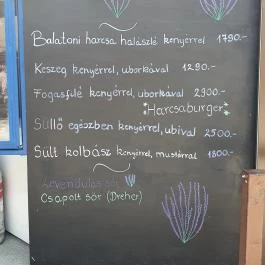 Balatoni harcsa halászlé kenyérrel 1790.-
Keszeg kenyérrel, uborkával 1290.-
Fogasfilé kenyérrel, uborkával 2900.-
*Harcsaburger*
Süllő egészben kenyérrel, ubival 2500.-
Sült kolbász kenyérrel, mustárral 1800.-
Levendulás sör
Csapolt sör (Dreher)